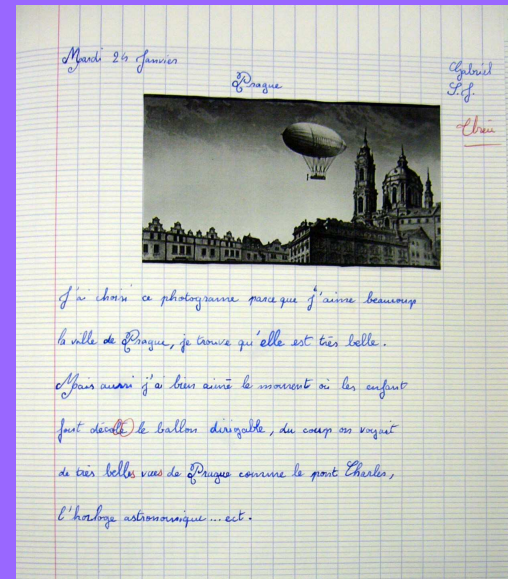 Mardi 24 Janvier
Prague
Gabriel
S.J.
J'ai choisi ce photograme parce que j'aime beaucoup
la ville de Prague, je trouve qu'elle est très belle.
Mais aussi j'ai bien aimé le moment où les enfant
font décollé le ballon dirigable, du coup on voyait
de très belles vues de Prague comme le pont Charles,
l'horloge astronomique... ect.